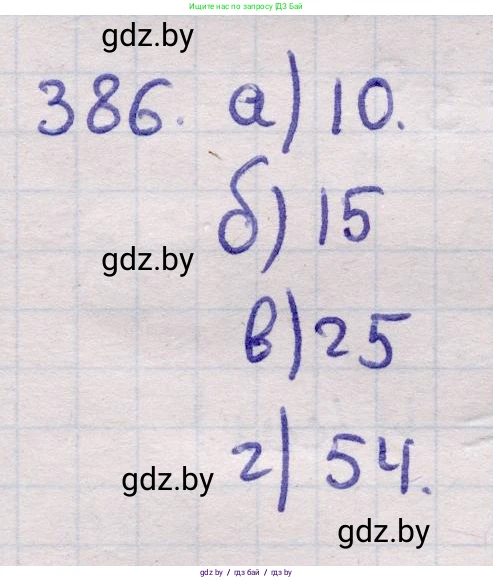 Ищите нас по запросу ГДЗ Бай
gdz.by
386. а) 10.
б) 15
gdz.by
в) 25
г) 54.
gdz.by
gdz.by
gdz.by / гдз бай / gdz.by